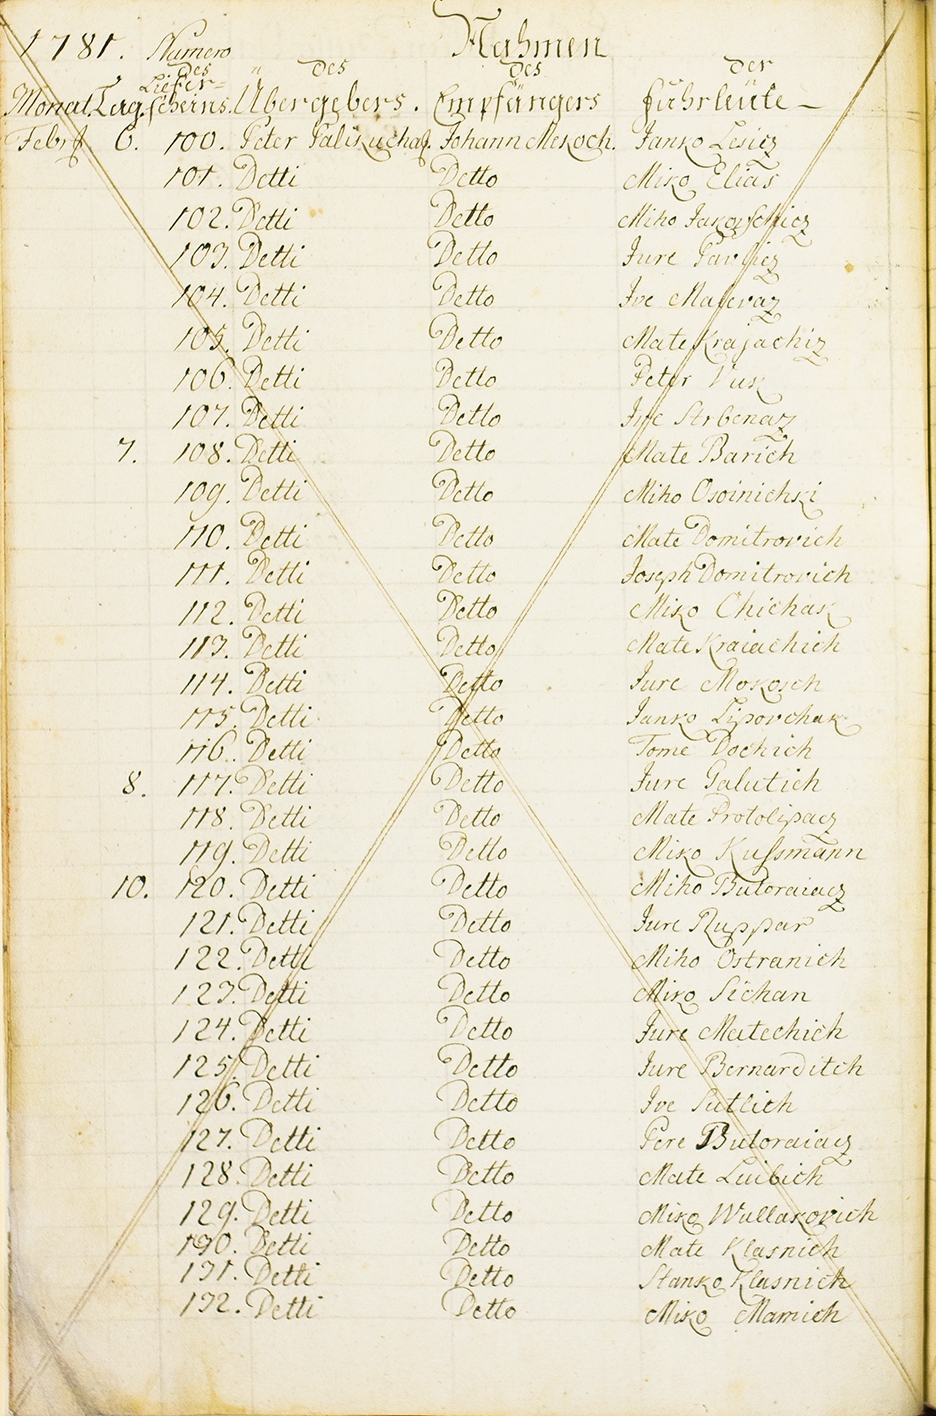 1781. Numero Nahmen
des des des der
Liefer-
Monat. Tag. scheins. Übergebers. Empfängers Fuhrleüte
Febr. 6. 100. Peter Johann Mekoch. Janko Lesicz
101. Detti Detto Miko Elias
102. Detti Detto Miho
103. Detti Detto Jure Pavlicz
104. Detti Detto Ive
105. Detti Detto Mate Krajachiz
106. Detti Detto Peter Vuk
107. Detti Detto Ive Strbenaz
7. 108. Detti Detto Mate Barich
109. Detti Detto Miho Osoinichki
110. Detti Detto Mate Domitrovich
111. Detti Detto Joseph Domitrovich
112. Detti Detto Miko Chichak
113. Detti Detto Mate Kraiachich
114. Detti Detto Jure Mokosch
115. Detti Detto Janko Lipovchak
116. Detti Detto Tome Dochich
8. 117. Detti Detto Jure Galutich
118. Detti Detto Mate Protolipacz
119. Detti Detto Miko Kussmann
10. 120. Detti Detto Miho Butoraiacz
121. Detti Detto Jure Ruppar
122. Detti Detto Miho Ostranich
123. Detti Detto Miko Sichan
124. Detti Detto Jure Matechich
125. Detti Detto Jure Bernarditch
126. Detti Detto Ive Sutlich
127. Detti Detto Pere Butoraiacz
128. Detti Detto Mate Luibich
129. Detti Detto Miko Wullakovich
130. Detti Detto Mate Klasnich
131. Detti Detto Stanko Klasnich
132. Detti Detto Miko Mamich